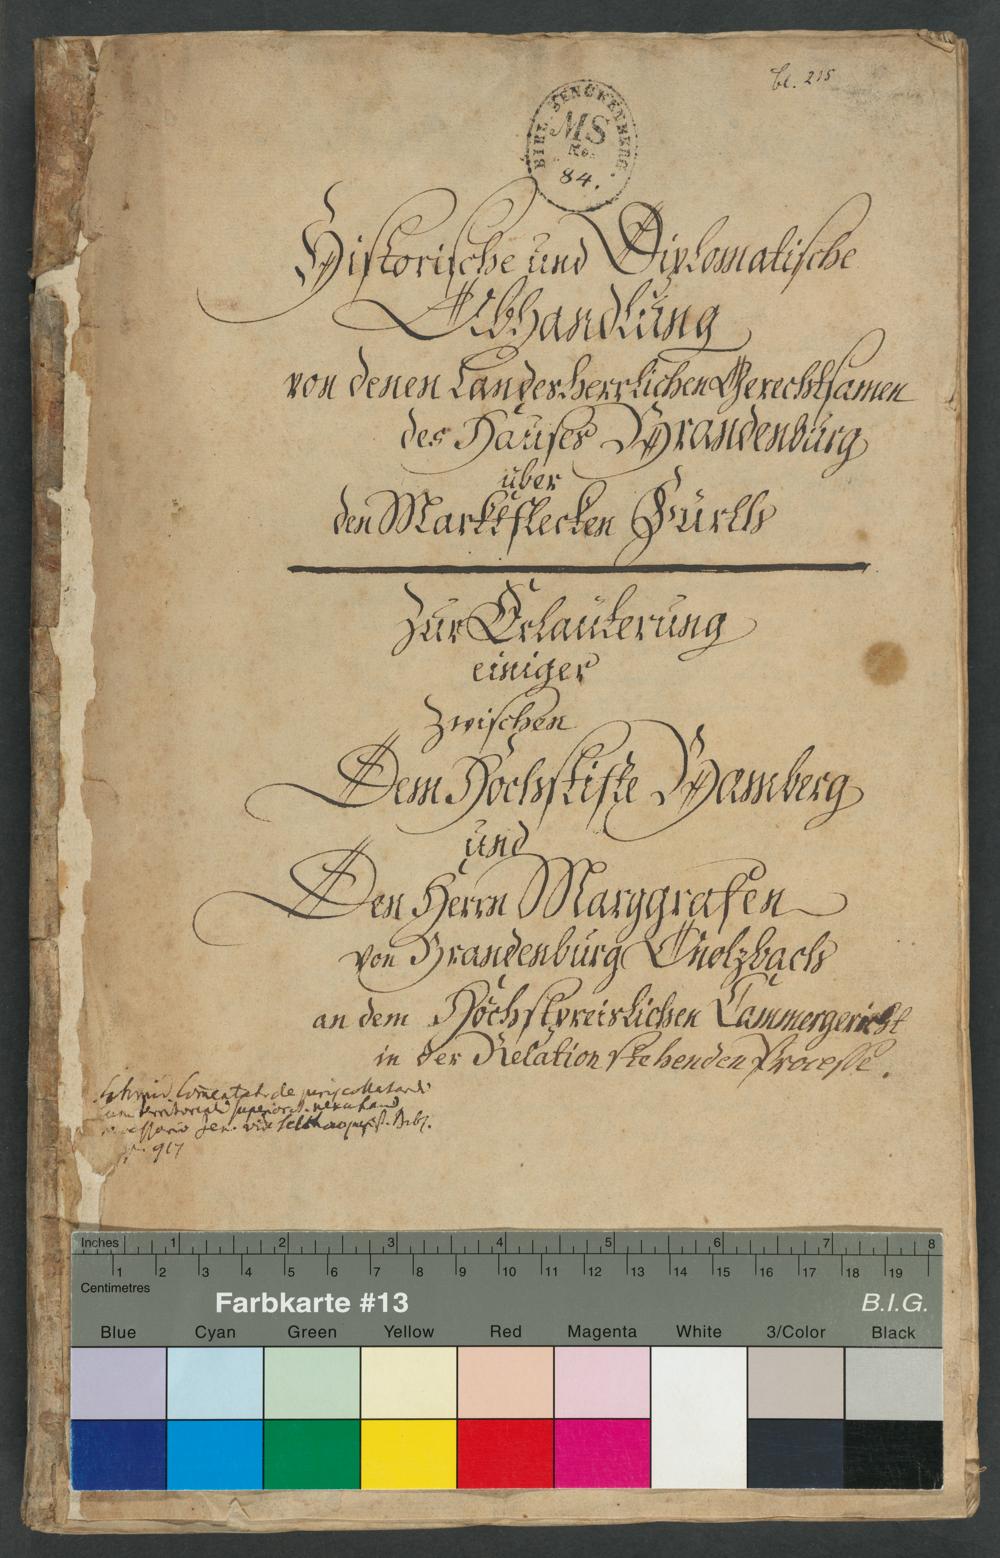 bl. 215
BIBL. SENCKENBERG.
MS
No.
84.
Historische und Diplomatische
Abhandlung
von denen Landesherrlichen Gerechtsamen
des Hauses Brandenburg
über
den Marktflecken Fürth
Zur Erläuterung
einiger
zwischen
Dem Hochstifte Bamberg
und
Den Herrn Marggrafen
von Brandenburg Onolzbach
an dem Höchstpreislichen Cammergericht
in der Relation stehenden Processe.
Comentat. de
territorial superiorit.
Jen. vid. Bibl.
p. 917
Inches 1 2 3 4 5 6 7 8
1 2 3 4 5 6 7 8 9 10 11 12 13 14 15 16 17 18 19
Centimetres
Farbkarte #13 B.I.G.
Blue Cyan Green Yellow Red Magenta White 3/Color Black